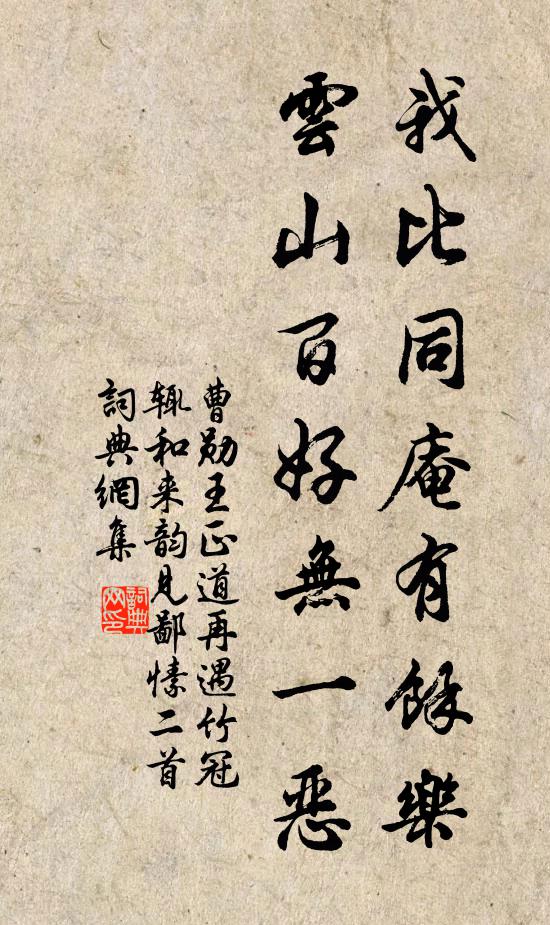 我比同庵有餘樂
雲山百好無一惡
曹勛王正道再遇竹冠
輒和来韵見鄙愫二首
詞典網集
詞典網印